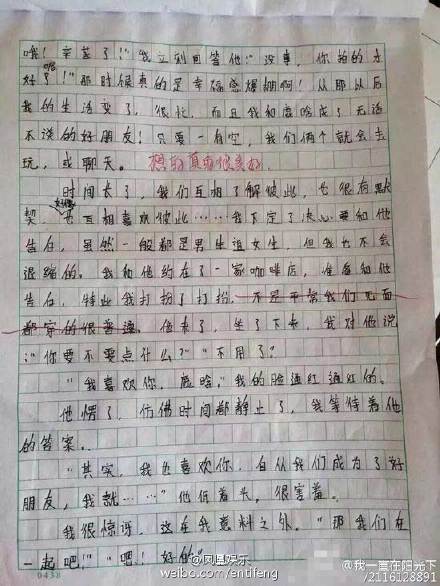 哦！辛苦了！"我立刻回答他"没事，你拍的才
好了呢！"那时候真的是幸福感爆棚啊！从那以后
我的生活变了，很忙，而且我和鹿晗成了无话
不谈的好朋友！只要一有空，我们俩个就会去
玩，或聊天。想的真有很美好。
时间长了，我们互相了解彼此，也很有默
契，也互相喜欢彼此……我下定了决心要和他
告白，虽然一般都是男生追女生，但我也不会
退缩的。我和他约在了一家咖啡店，准备和他
告白，特此我打扮了打扮，不是平常我们见面
都穿的很普通。他来了，坐了下来，我对他说
："你要不要点什么？""不用了？
"我喜欢你，鹿晗。"我的脸通红通红的。
他愣了，仿佛时间都静止了，我等待着他
的答案。
"其实，我也喜欢你，自从我们成为了好
朋友，我就……"他低着头，很害羞。
我很惊讶，这在我意料之外。"那我们在
一起吧！""吧！好的"
0438
@凤凰娱乐
weibo.com/entifeng
@我一直在阳光下
/2116128891